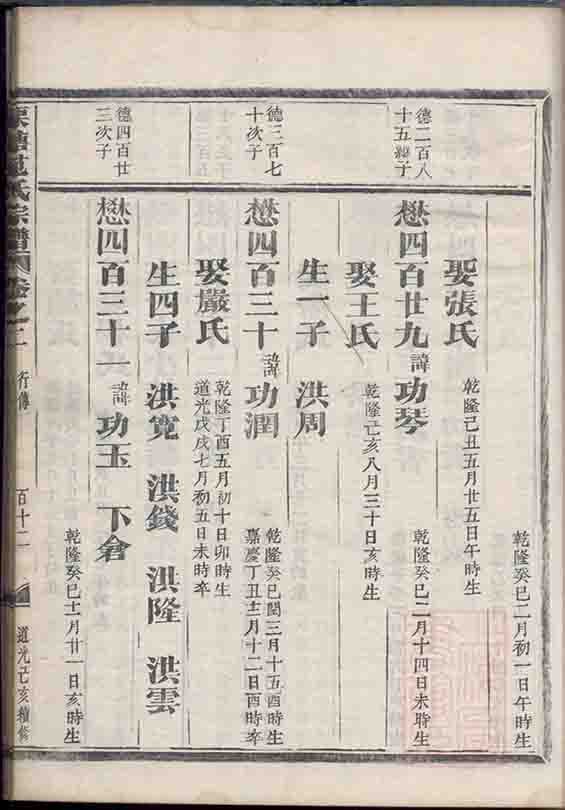 乾隆癸巳二月初一日午時生
娶張氏
乾隆己丑五月廿五日午時生
德二百八
十五繼子
懋四百廿九諱功琴
乾隆癸巳二月十四日未時生
娶王氏
乾隆乙亥八月三十日亥時生
生一子 洪周
德三百七
十次子
懋四百三十諱功潤
乾隆癸巳閏三月十五酉時生
嘉慶丁丑十二月十二日酉時卒
娶嚴氏
乾隆丁酉五月初十日卯時生
道光戊戌七月初五日未時卒
生四子 洪寬 洪錢 洪隆 洪雲
德四百廿
三次子
懋四百三十一諱功玉 下倉
乾隆癸巳十一月廿一日亥時生
氏宗譜 卷之二 行傳 百十二 道光己亥續修